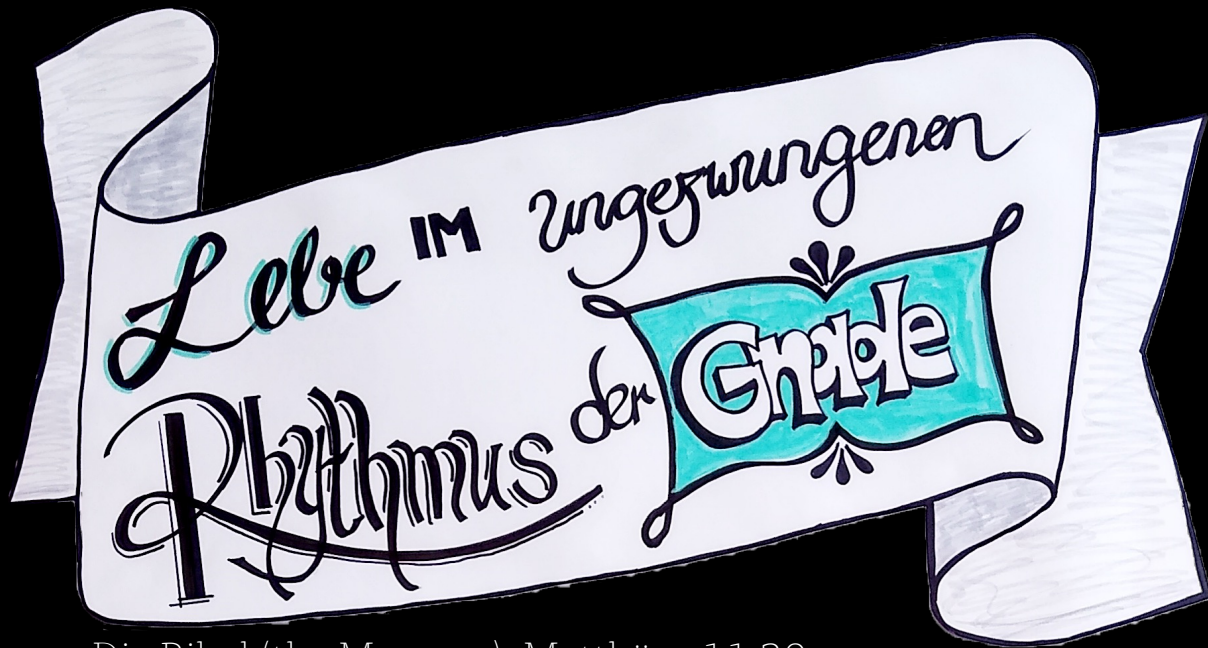 Lebe IM ungezwungenen
Rhythmus der Gnade
Die Bibel (the Message) Matthäus 11,29